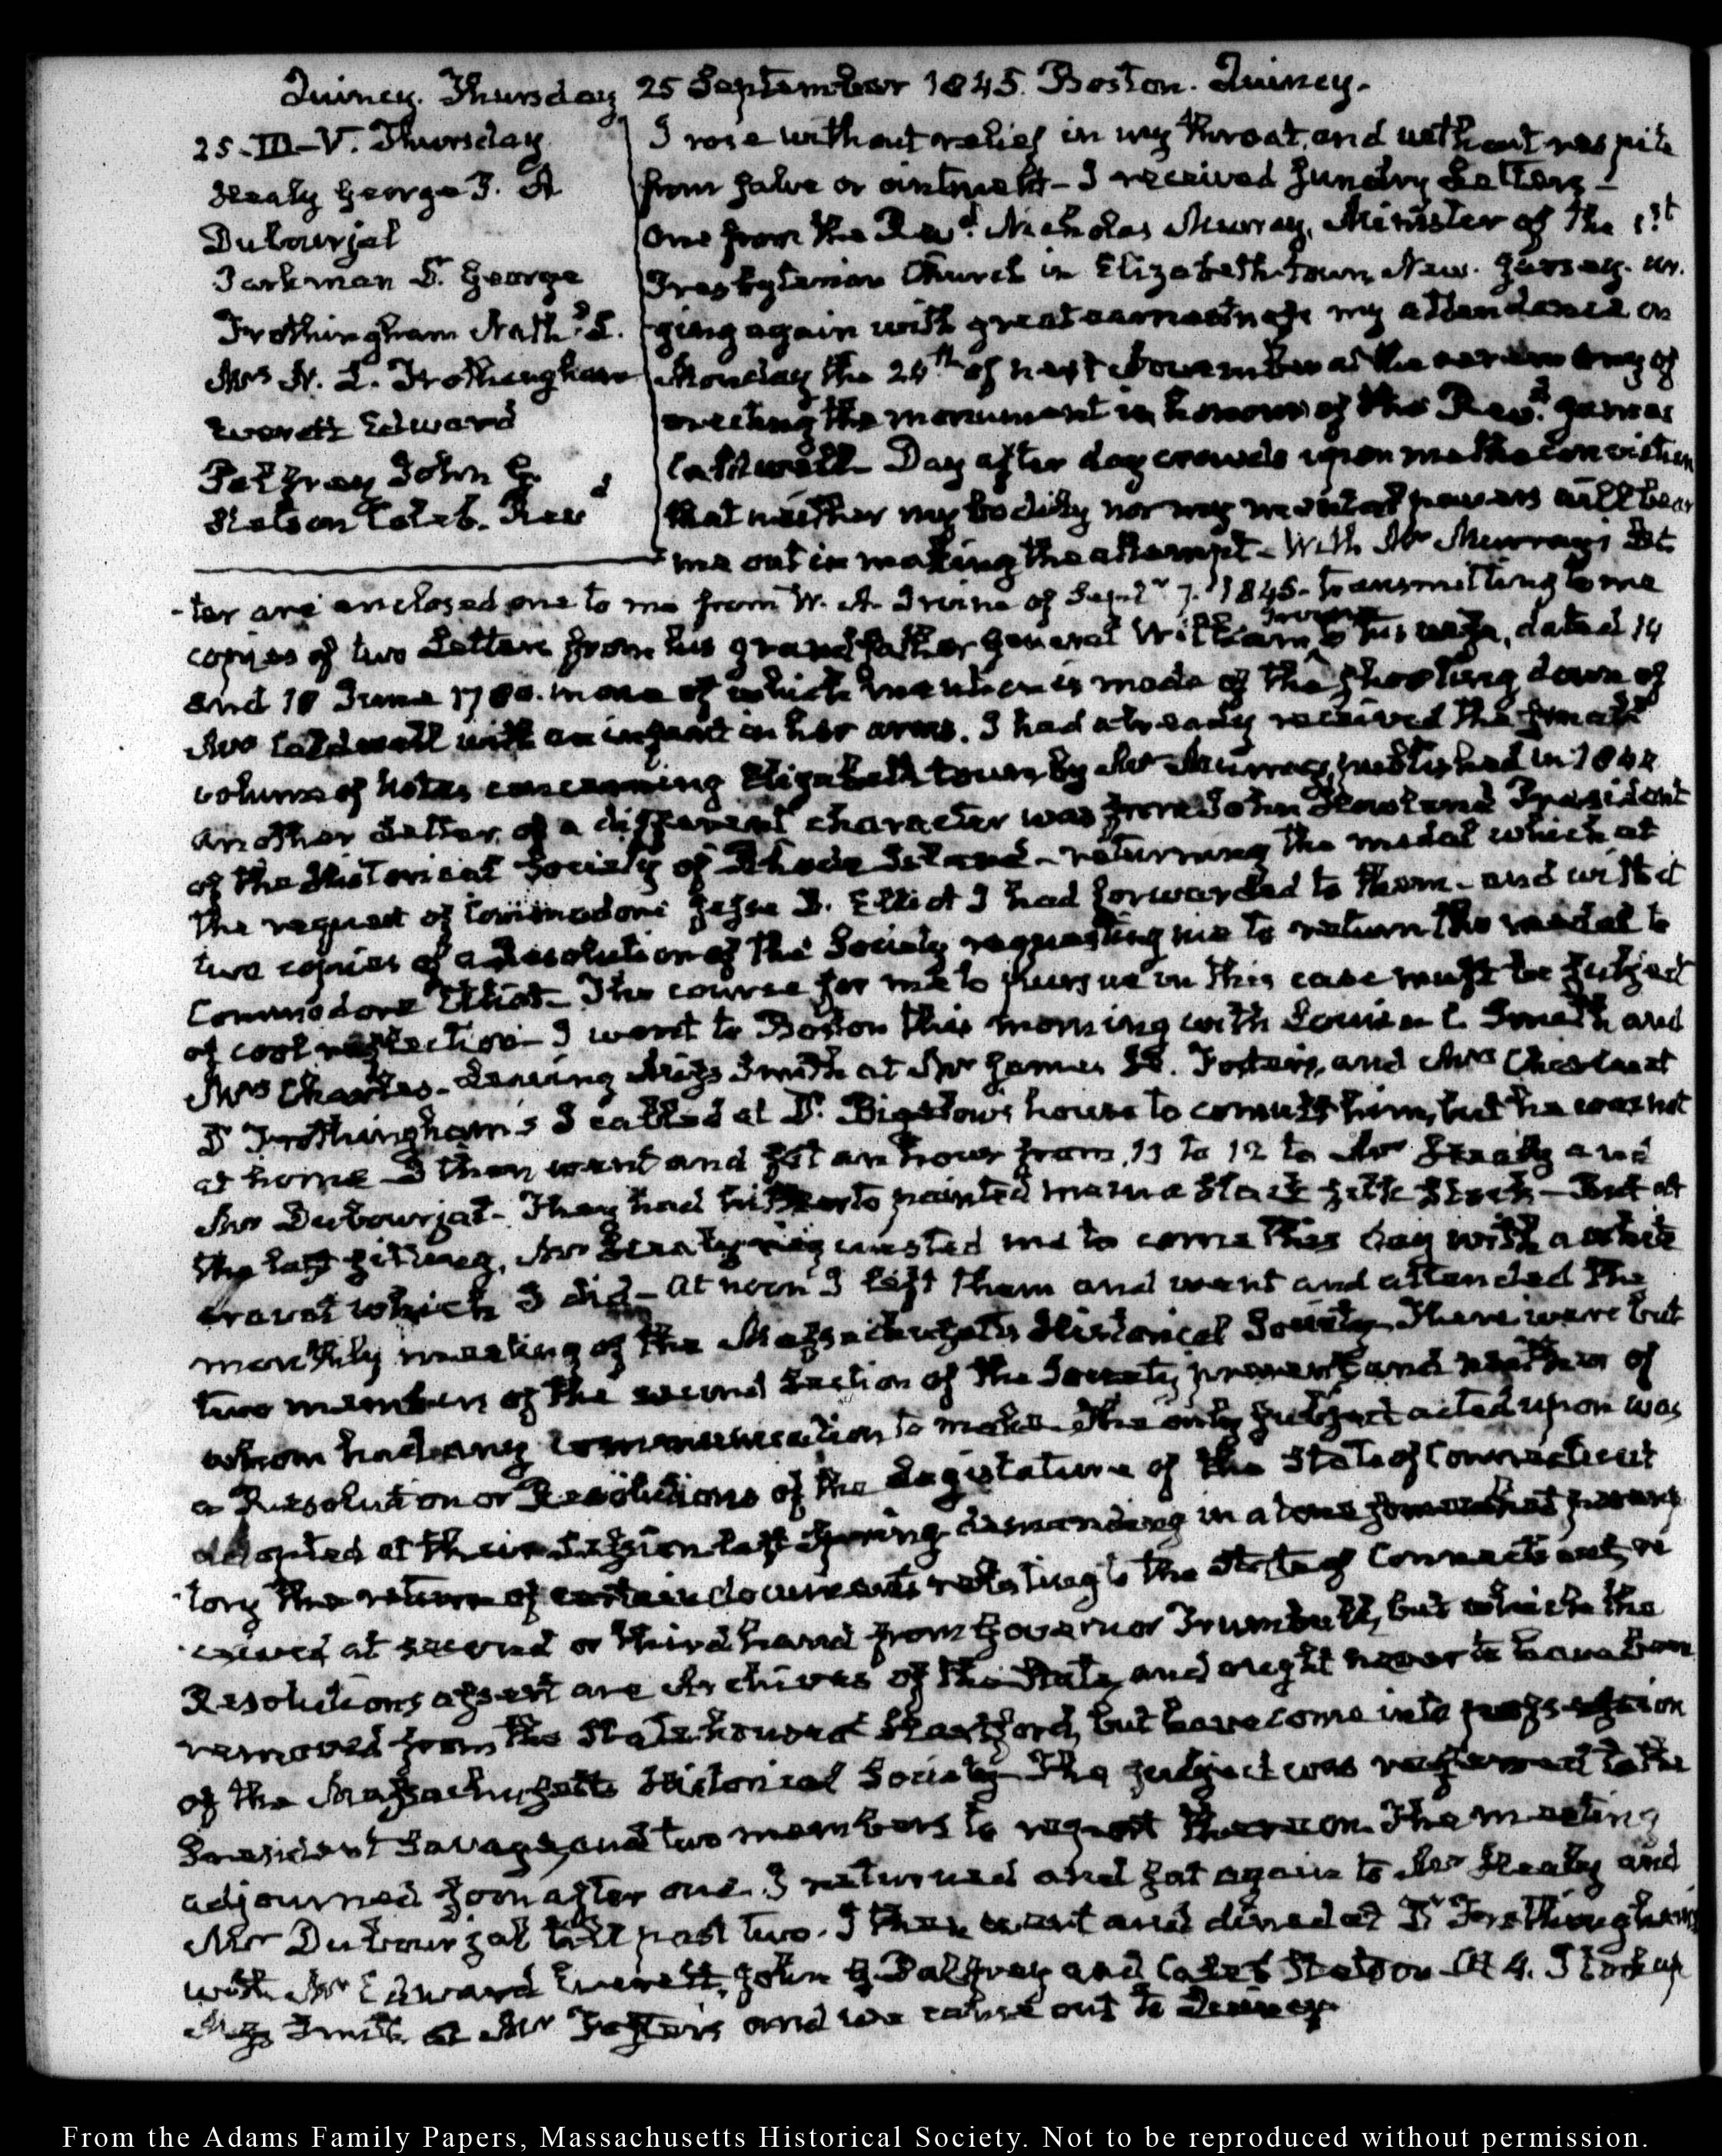 Quincy. Thursday 25 September 1845. Boston. Quincy.
25. III–V. Thursday
Healy George P. A
Dubourjal
Parkman D. George
Frothingham Nathl. L.
Mrs N. L. Frothingham
Everett Edward
Palfrey John G.
Stetson Caleb. Revd
I rose without relief in my throat, and without respite
from salve or ointment – I received sundry Letters –
One from the Revd. Nicholas Murray, Minister of the 1st
Presbyterian Church in Elizabeth town New. Jersey. ur-
ging again with great earnestness my attendance on
Monday the 24th of next November at the ceremony of
erecting the monument in honour of the Revd. James
Caldwell. Day after day crowds upon me the conviction
that neither my bodily nor my mental powers will bear
me out in making the attempt – With Mr Murray's Let-
-ter are enclosed one to me from W. A. Irvine of Septr 7. 1845. transmitting to me
copies of two Letters from his grandfather General William Irvine to his wife, dated 14
and 18 June 1780. in one of which mention is made of the shooting down of
Mrs Caldwell with an infant in her arms. I had already received the small
volume of notes concerning Elizabeth town, by Mr Murray, published in 1844
Another Letter, of a different character was from John Howland President
of the Historical Society of Rhode Island – returning the medal which at
the request of Commodore Jesse D. Elliot I had forwarded to them – and with it
two copies of a Resolution of the Society requesting me to return the medal to
Commodore Elliot – The course for me to pursue in this case must be subject
of cool reflection – I went to Boston this morning with Louisa C. Smith and
Mrs Charles – leaving Miss Smith at Mr James H. Foster's, and Mrs Charles at
Dr Frothingham's I called at Dr. Bigelow's house to consult him, but he was not
at home – I then went and sat an hour from 11 to 12 to Mr Healy and
Mr Dubourjal – They had hitherto painted me in a black silk stock – But at
the last sitting, Mr Healy requested me to come this day with a white
cravat which I did – At noon I left them and went and attended the
monthly meeting of the Massachusetts Historical Society – There were but
two members of the second Section of the Society present and neither of
whom had any communication to make – The only subject acted upon was
a Resolution or Resolutions of the Legislature of the State of Connecticut
adopted at their Session last Spring demanding in a tone somewhat
-tory the return of certain documents relating to the State of Connecticut, re
-ceived at second or third hand from Governor Trumbull, but which the
Resolutions assert are Archives of the State, and ought never to have been
removed from the State house at Hartford, but have come into possession
of the Massachusetts Historical Society – The subject was referred to the
President Savage, and two members to report thereon. The meeting
adjourned soon after one. I returned and sat again to Mr Healy and
Mr Dubourjal till past two. I then went and dined at Dr Frothingham's
with Mr Edward Everett, John G. Palfrey and Caleb Stetson – At 4. I took up
Miss Smith at Mr Foster's and we came out to Quincy.
From the Adams Family Papers, Massachusetts Historical Society. Not to be reproduced without permission.